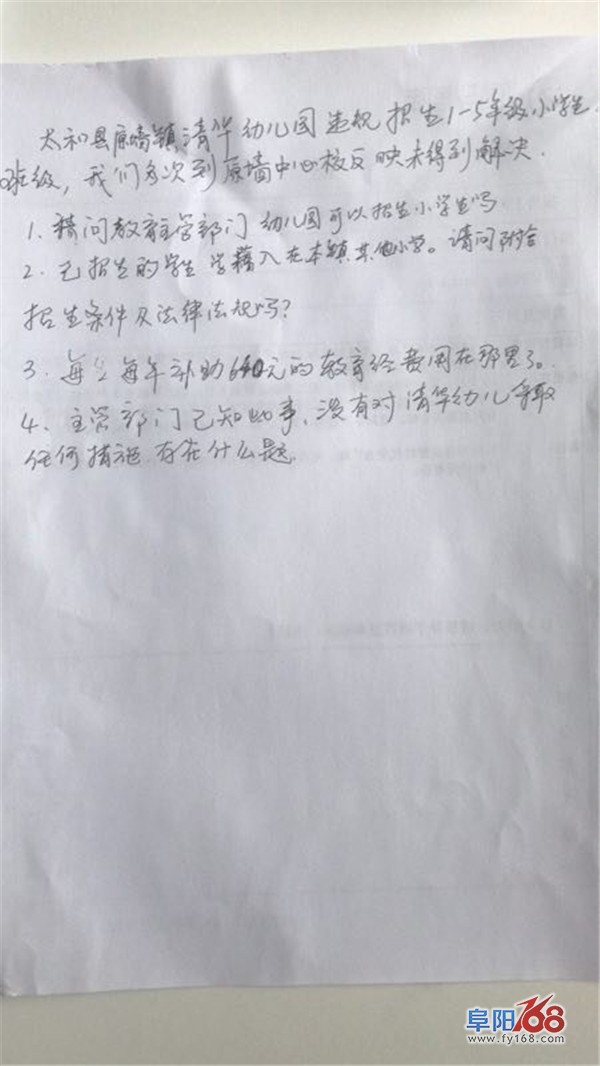 太和县原墙镇清华幼儿园违规招生1-5年级小学生
班级，我们多次到原墙中心校反映未得到解决.
1、請问教育主管部门 幼儿园可以招生小学生吗
2、已招生的学生 学籍入在本镇其他小学。请问附合
招生条件及法律法规吗?
3、每生每年补助640元的教育经费用在那里了。
4、主管部门已知此事、没有对清华幼儿争取
任何措施.存在什么题
阜阳168
www.fy168.com